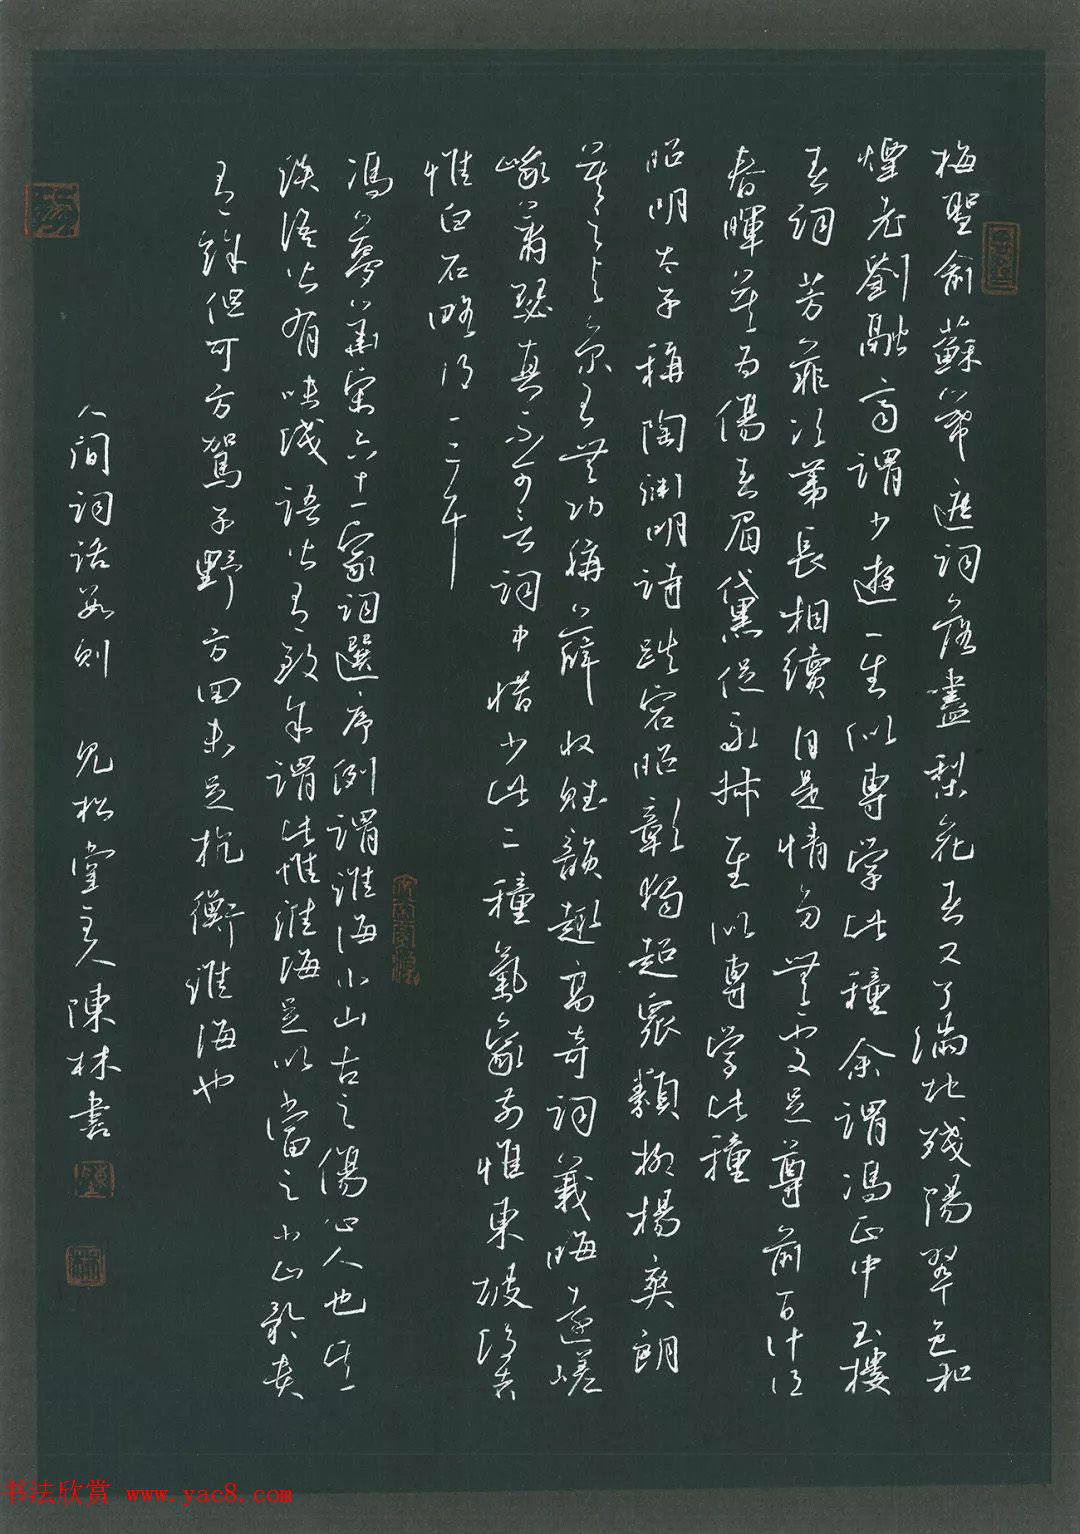 梅聖俞蘇幕遮詞落盡梨花春又了滿地殘陽翠色和
煙老劉融齋謂少游一生似專學此種余謂馮正中玉樓
春詞芳菲次第長相續自是情多無處足尊前百計得
春歸莫為傷春眉黛促永叔一生似專學此種
昭明太子稱陶淵明詩跌宕昭彰獨超衆類抑揚爽朗
莫之與京王無功稱薛收賦韻趣高奇詞義晦遠嵯
峨蕭瑟真不可言詞中惜少此二種氣象前惟東坡後者
惟白石略得一二耳
馮夢華宋六十一家詞選序例謂淮海小山古之傷心人也其
淡語皆有味淺語皆有致余謂此惟淮海足以當之小山矜貴
有餘但可方駕子野方回未足抗衡淮海也
人間詞話數則 見松堂主人陳林書
书法欣赏 www.yac8.com